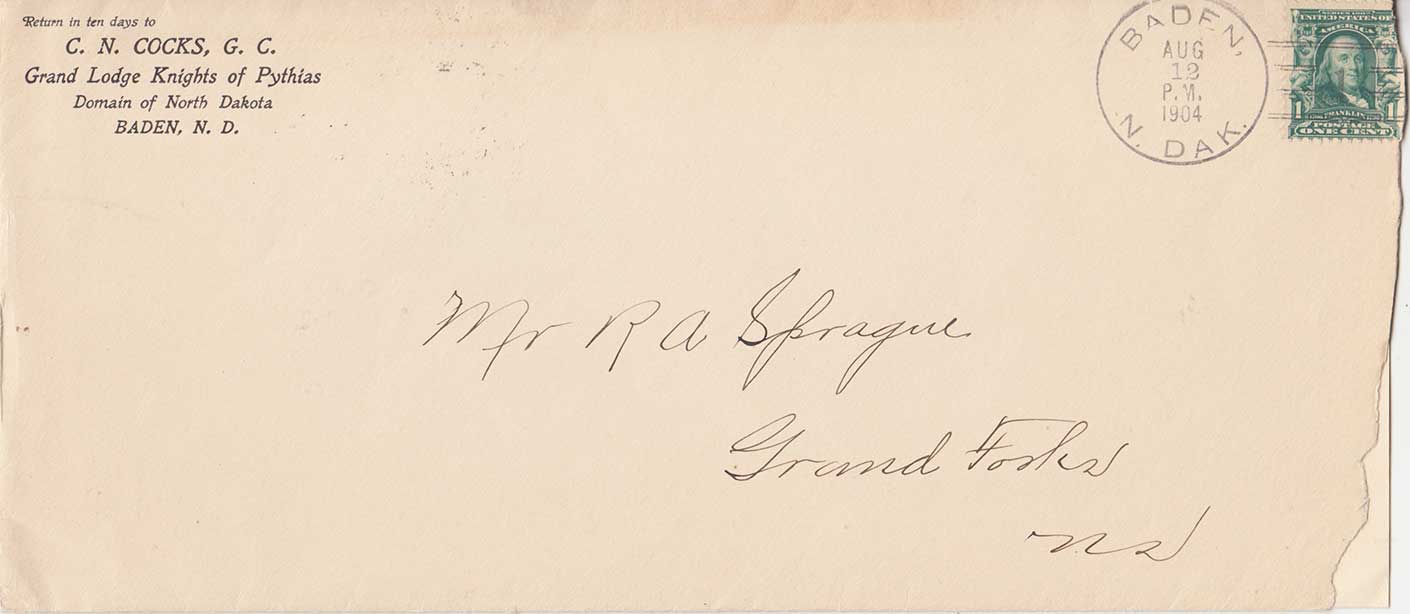 Return in ten days to
C. N. COCKS, G. C.
Grand Lodge Knights of Pythias
Domain of North Dakota
BADEN, N. D.
BADEN,
AUG
12
P.M.
1904
N. DAK.
UNITED STATES OF
AMERICA
1 FRANKLIN 1
POSTAGE
ONE CENT
Mr R A Sprague
Grand Forks
N D